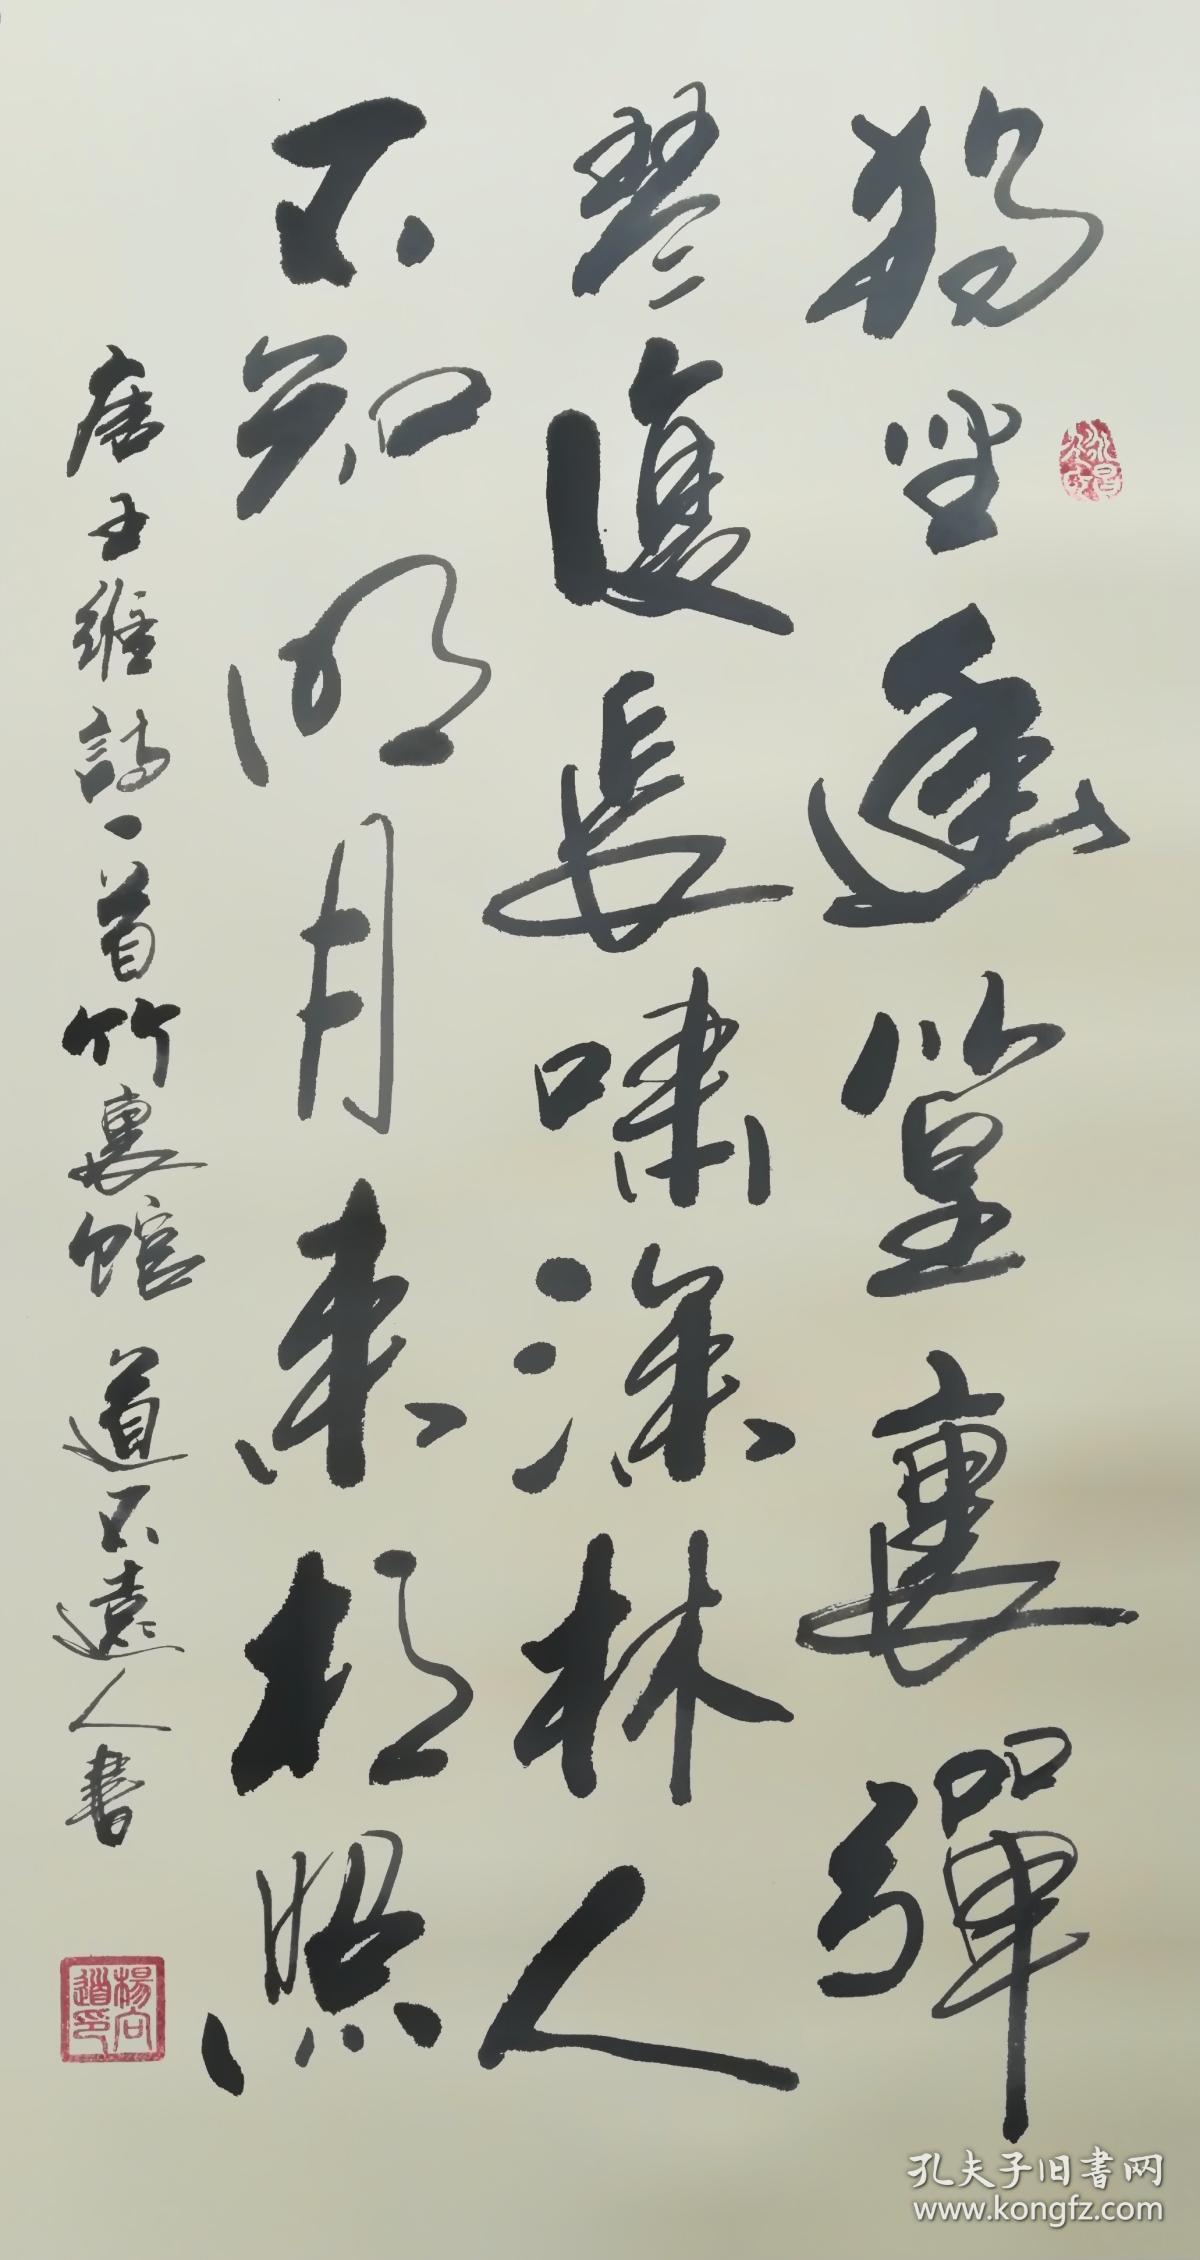 獨坐幽篁裏彈
琴復長嘯深林人
不知明月来相照
唐王維詩一首竹裏館 道不遠人書
楊向道印
孔夫子旧书网
www.kongfz.com